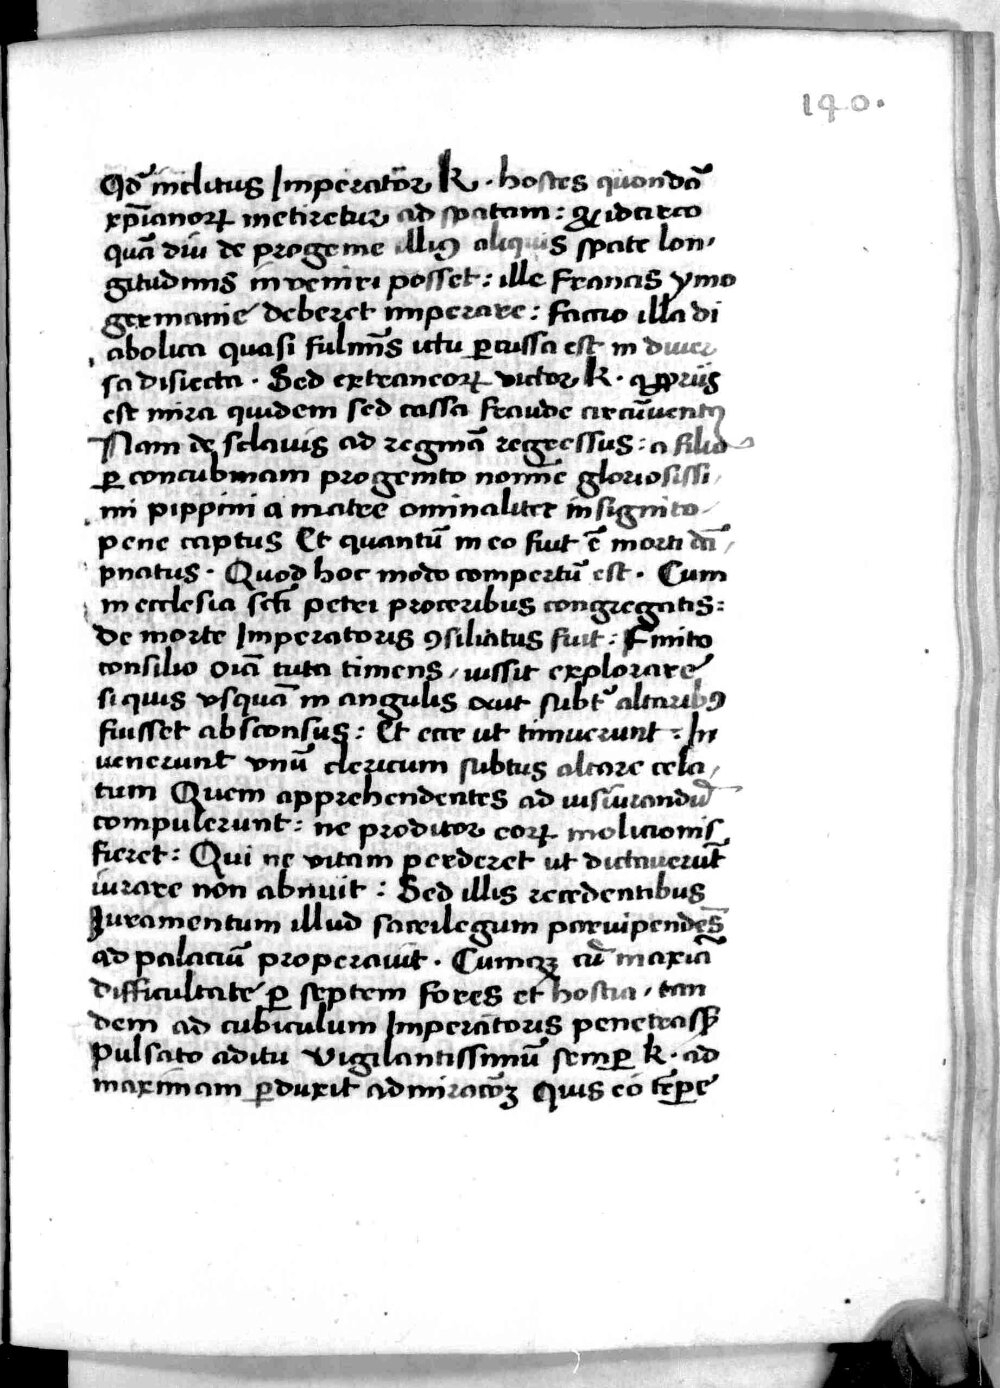 140.
Qd̄ inclitus Imperator̄ k. hostes quondā
xp̄ianoꝝ metiretur ad spatam: Qd̄ idcirco
quā diu de progenie illiꝰ aliquis spate lon,
gitudinis inveniri posset: ille Francis ymo
germanie deberet imperare: factio illa di
abolica quasi fulmīs ictu ꝑcussa est in diuer
sa disiecta. Sed extraneoꝝ victor k. a ꝓpriis
est mira quidem sed cassa fraude circūuentꝰ
Nam de sclavis ad reginā regressus: a filio
ꝑ concubinam progenito nomīe gloriosissi,
mi pippini a matre ominaliter insignito
pene captus Et quantū in eo fuit ē morti dā,
pnatus. Quod hoc modo compertū est. Cum
in ecclesia sct̄i petri proceribus congregatis:
de morte Imperatoris ꝯsiliatus fuit: Finito
consilio oīa tuta timens, iussit explorare
si quis vsquā in angulis aut subtꝰ altaribꝰ
fuisset absconsus: Et ecce ut timuerunt: In
uenerunt vnū clericum subtus altare cela,
tum Quem apprehendentes ad iusiurandū
compulerunt: ne proditor eoꝝ molicionis
fieret: Qui ne vitam perderet ut dictauerūt
iurare non abnuit: Sed illis recedentibus
Iuramentum illud sacrilegum parvipendēs
ad palaciū properavit. Cumqꝫ cū maxīa
difficultate ꝑ septem fores et hostia, tan
dem ad cubiculum Imperatoris penetrass&
pulsato aditu vigilantissimū semꝑ k. ad
maximam ꝑduxit admiracōꝫ Quis eo tēꝑe